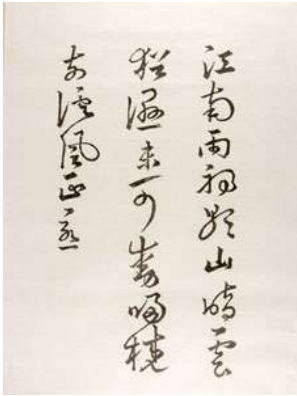 江南雨初歇山暗雲
猶濕未可動歸橈
前溪風正急